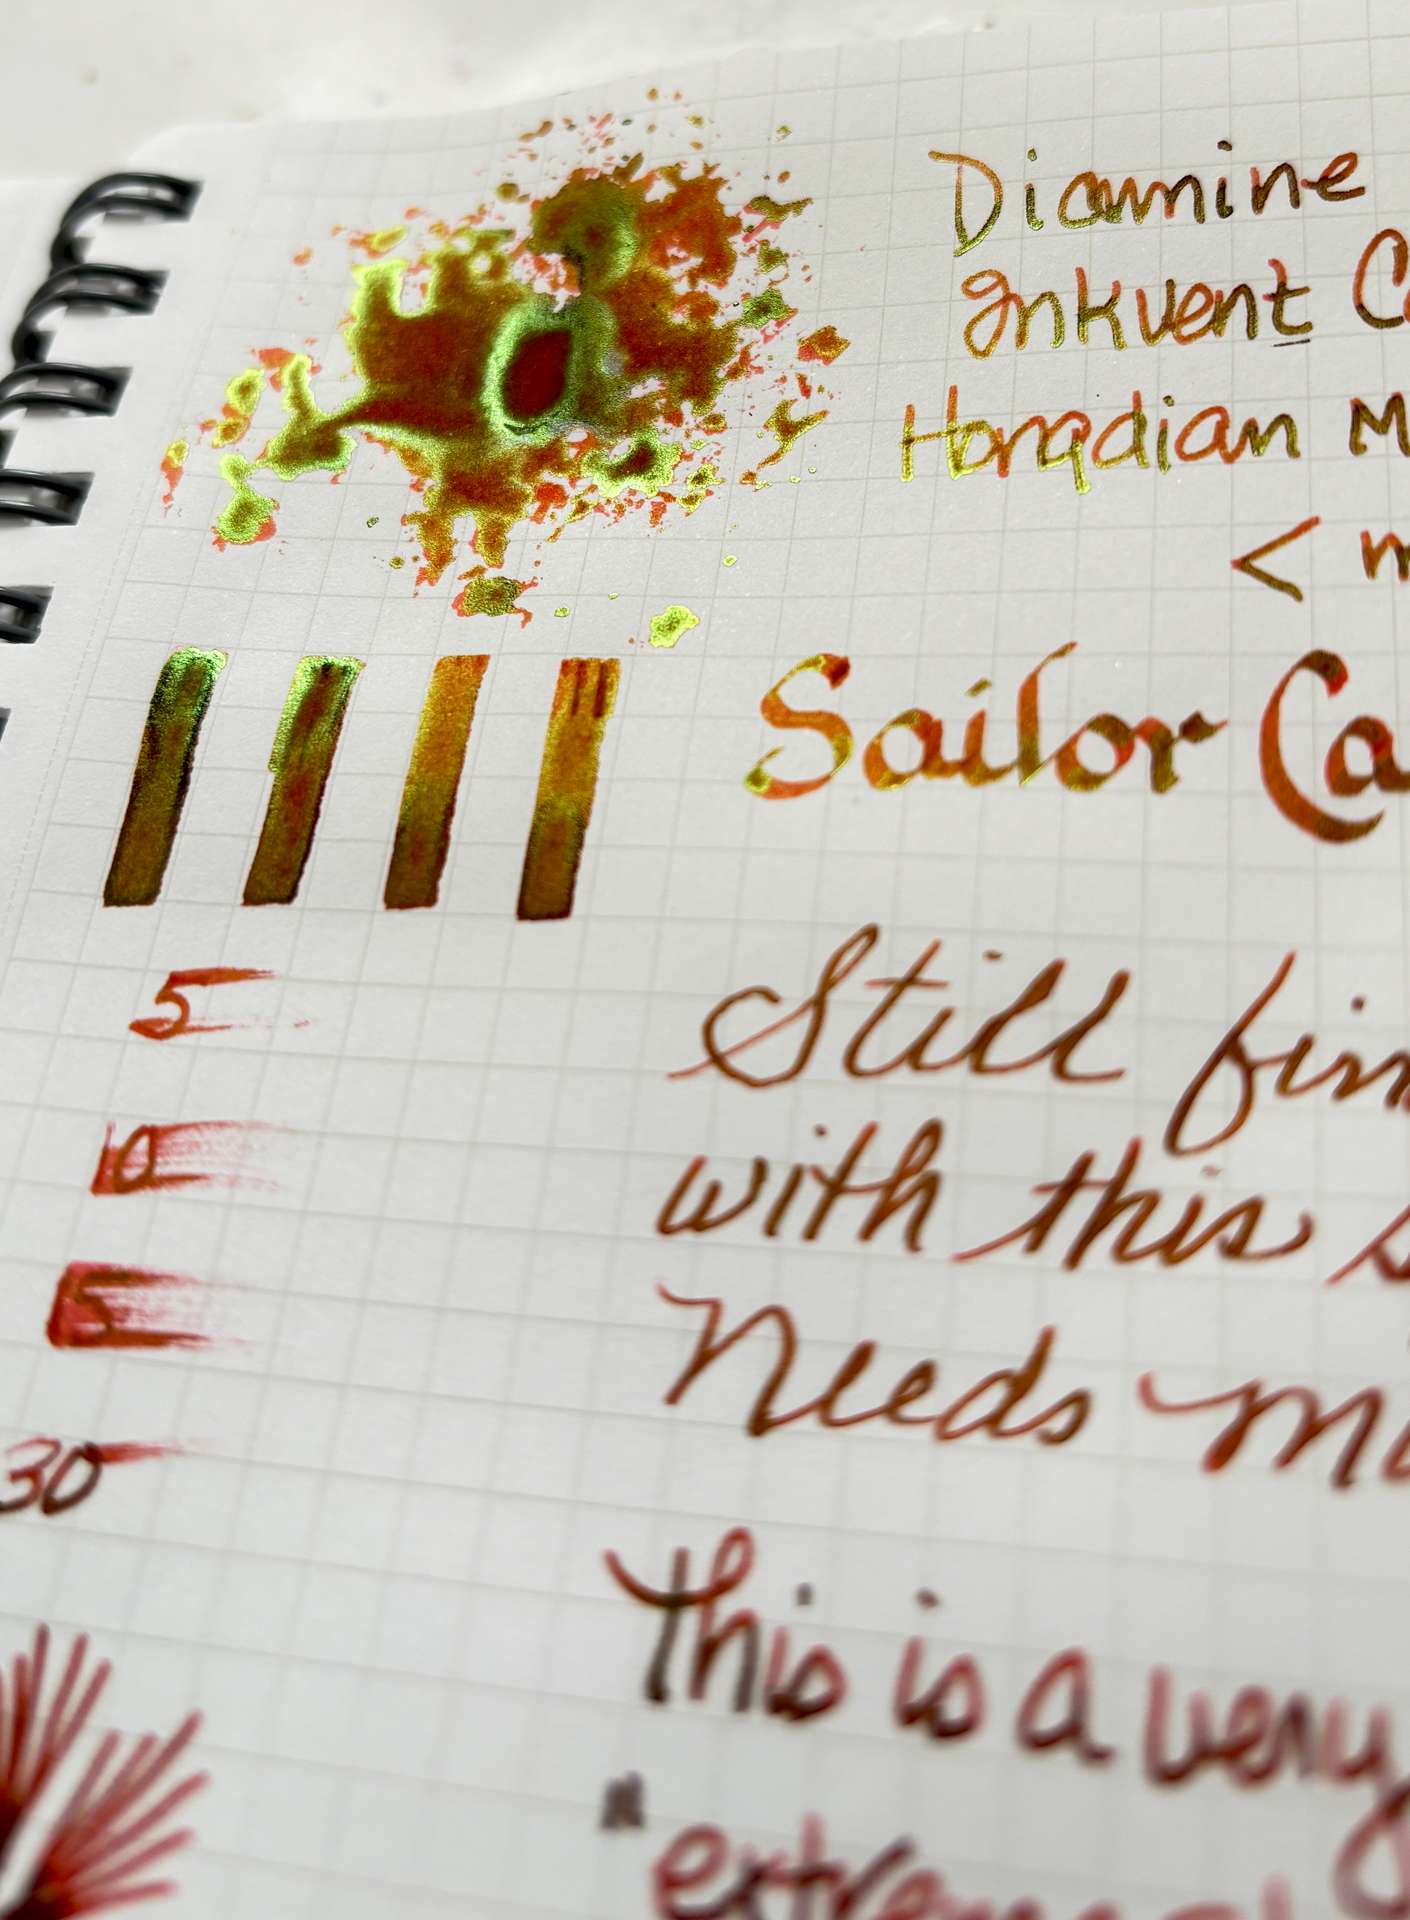 Diamine
Inkvent
Hongdian M
< m
Sailor Ca
5
Still
10
with this
5
Needs
30
This is a very
"extreme